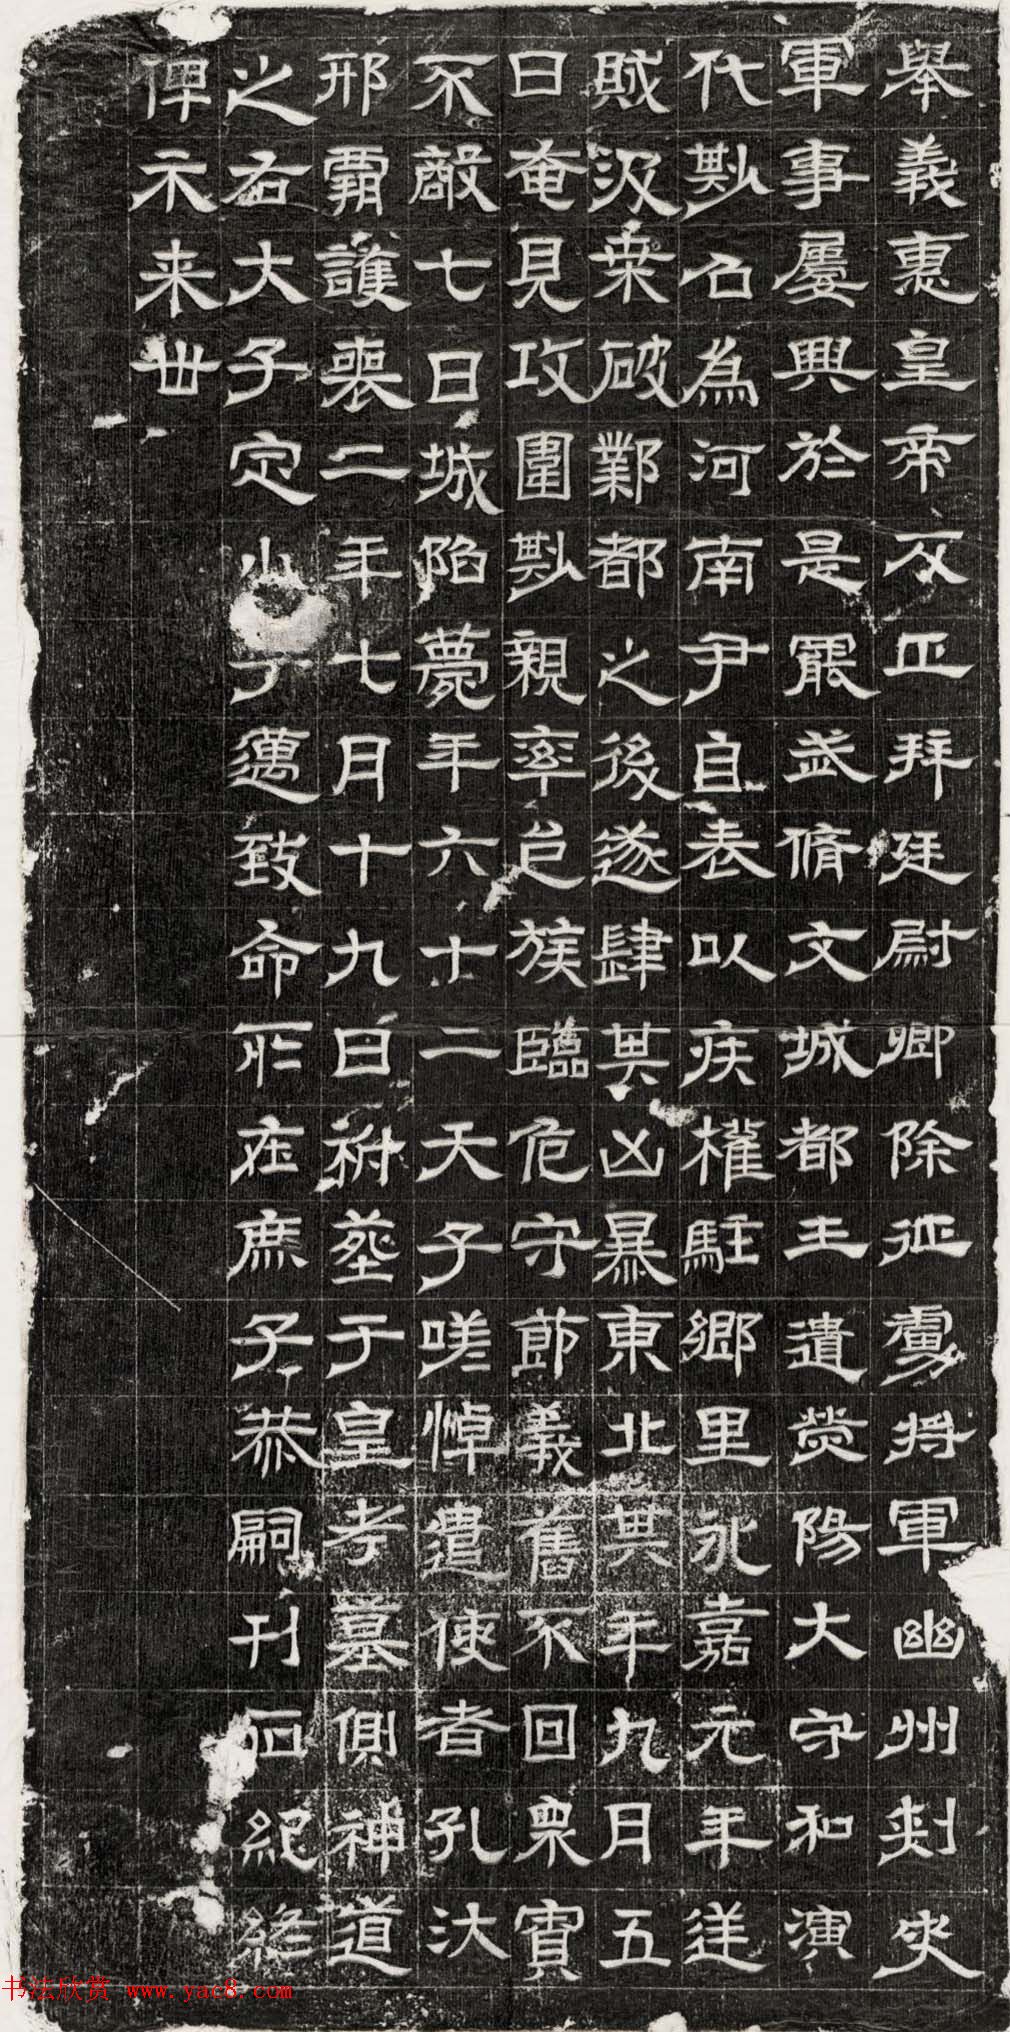 舉義惠皇帝反正拜廷尉卿除征虜將軍幽州刺史
軍事屢興於是罷武脩文城都王遣熒陽大守和演
代尠召為河南尹自表以疾權駐鄉里永嘉元年逆
賊汲桒破鄴都之後遂肆其凶暴東北其年九月五
日奄見攻圍尠親率邑族臨危守節義舊不回衆寡
不敵七日城陷薨年六十二天子嗟悼遣使者孔汏
邢霸護喪二年七月十九日祔葬于皇考墓側神道
之右大子定小子邁致命所在庶子恭嗣刊石紀終
俾示来世
书法欣赏 www.yac8.com